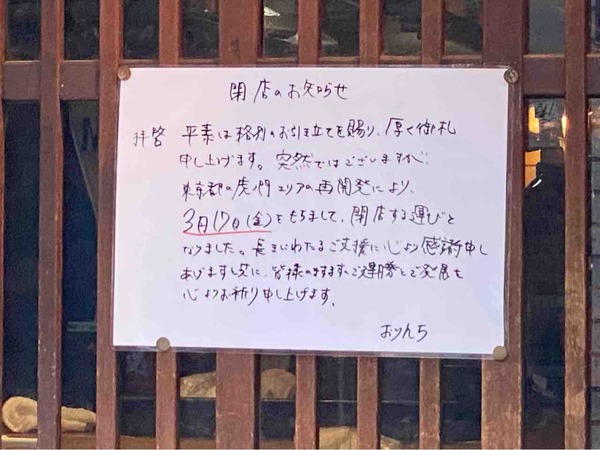 閉店のお知らせ
拝啓 平素は格別のお引き立てを賜り、厚く御礼
申し上げます。突然ではございますが、
東京都の虎ノ門エリアの再開発により、
3月17日(金)をもちまして、閉店する運びと
なりました。長きにわたるご支援に心より感謝申し
あげますと共に、皆様のますますのご健勝とご発展を
心よりお祈り申し上げます。
おりんち